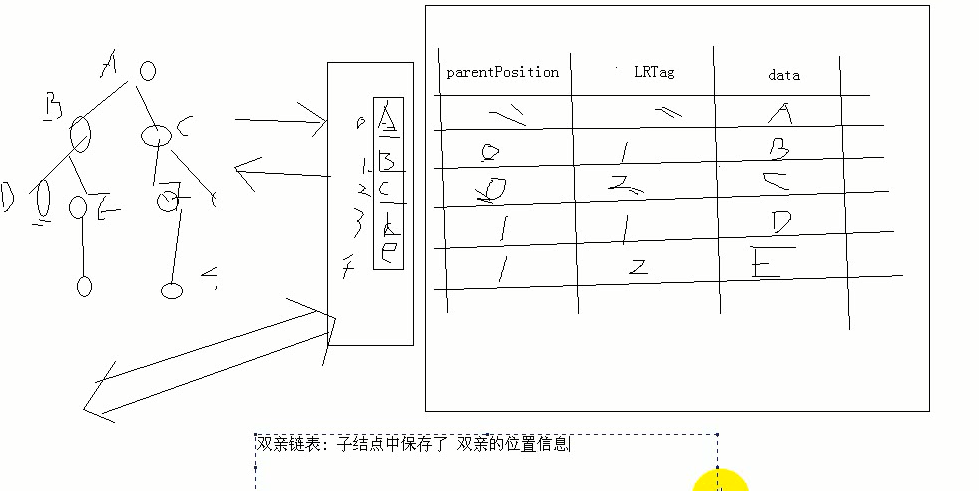 A
B
C
D
E
F
0 A
1. B
2 C
3 d
4 e
parentPosition LRTag data
A
0 1 B
0 2 C
1 1 D
1 2 E
双亲链表：子结点中保存了 双亲的位置信息